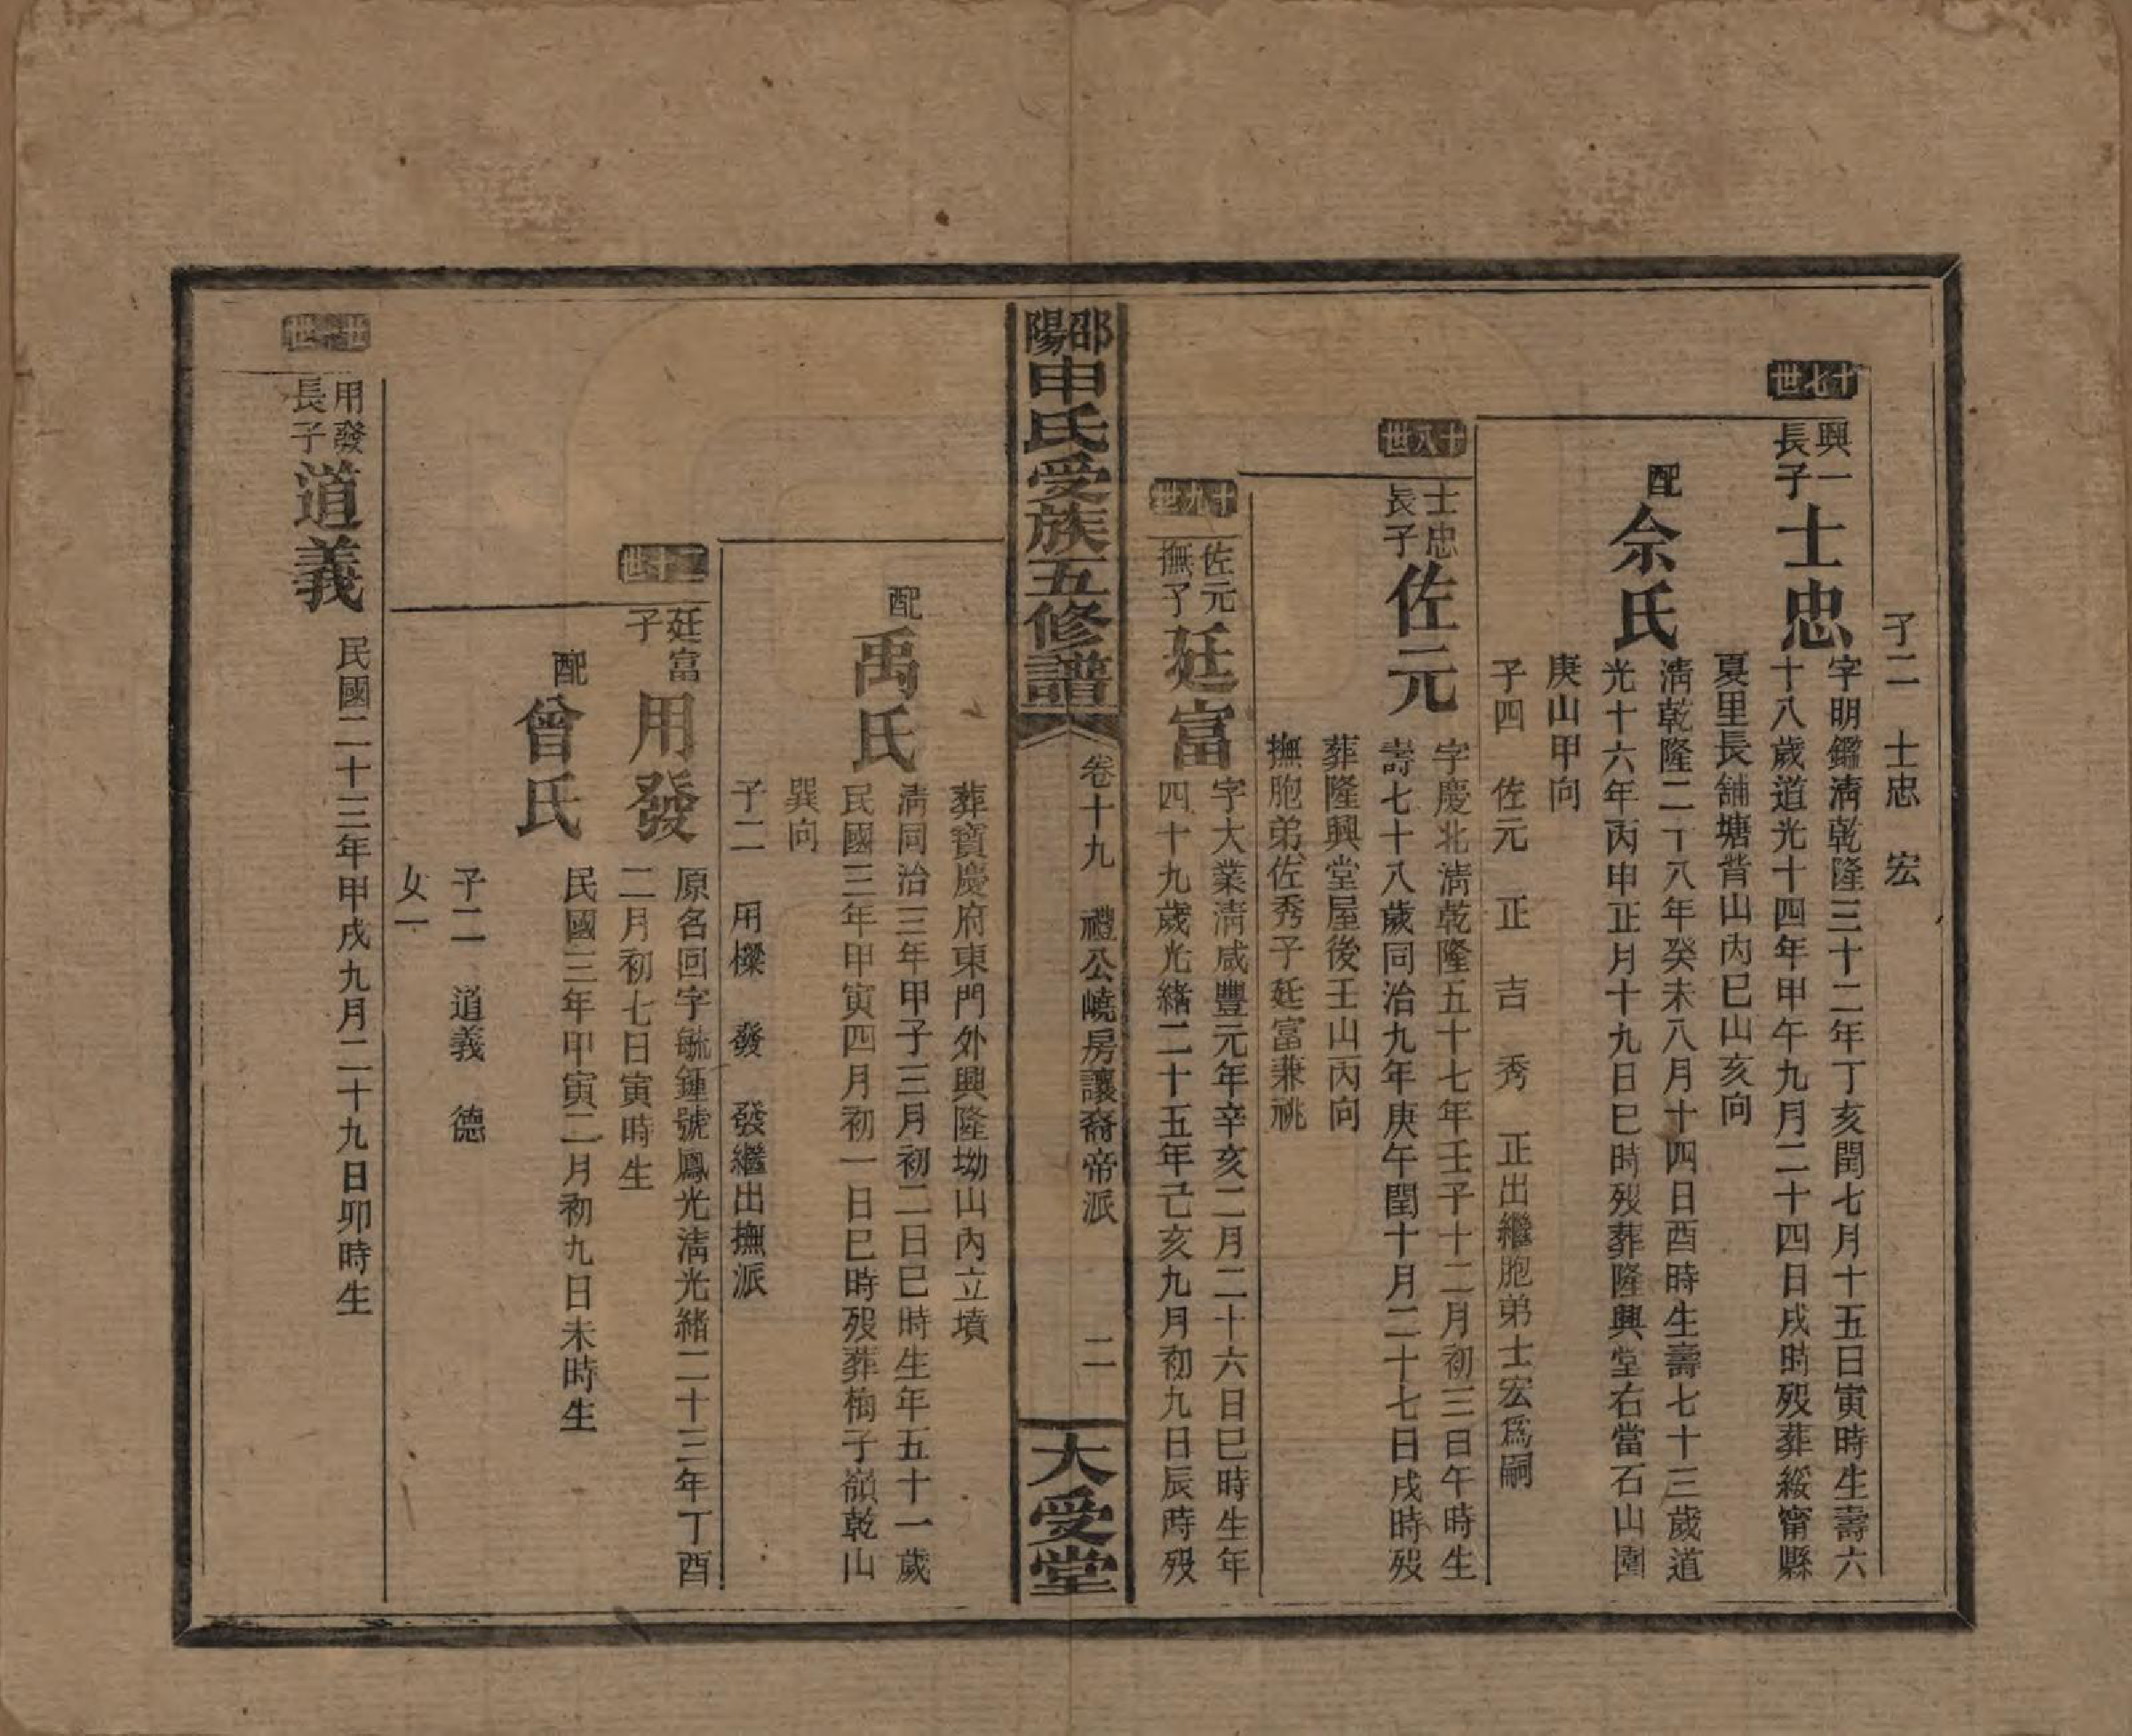 子二　士忠　宏
十七世
興一長子
士忠
字明鑑淸乾隆三十二年丁亥閏七月十五日寅時生壽六
十八歲道光十四年甲午九月二十四日戌時歿葬綏甯縣
夏里長舖塘背山內巳山亥向
配
佘氏
淸乾隆二十八年癸未八月十四日酉時生壽七十三歲道
光十六年丙申正月十九日巳時歿葬隆興堂右當石山園
庚山甲向
子四　佐元　正　吉　秀　正出繼胞弟士宏爲嗣
十八世
士忠長子
佐元
字慶北淸乾隆五十七年壬子十二月初三日午時生
壽七十八歲同治九年庚午閏十月二十七日戌時歿
葬隆興堂屋後壬山丙向
撫胞弟佐秀子廷富兼祧
十九世
佐元撫子
廷富
字大業淸咸豐元年辛亥二月二十六日巳時生年
四十九歲光緒二十五年己亥九月初九日辰時歿
邵陽申氏受族五修譜
卷十九　禮公嶢房讓裔帝派　二
大受堂
葬寶慶府東門外興隆坳山內立墳
配
禹氏
淸同治三年甲子三月初二日巳時生年五十一歲
民國三年甲寅四月初一日巳時歿葬梅子嶺乾山
巽向
子二　用樑　發　發繼出撫派
二十世
廷富子
用發
原名回字毓鍾號鳳光淸光緒二十三年丁酉
二月初七日寅時生
配
曾氏
民國三年甲寅二月初九日未時生
子二　道義　德
女一
世
用發長子
道義
民國二十三年甲戌九月二十九日卯時生